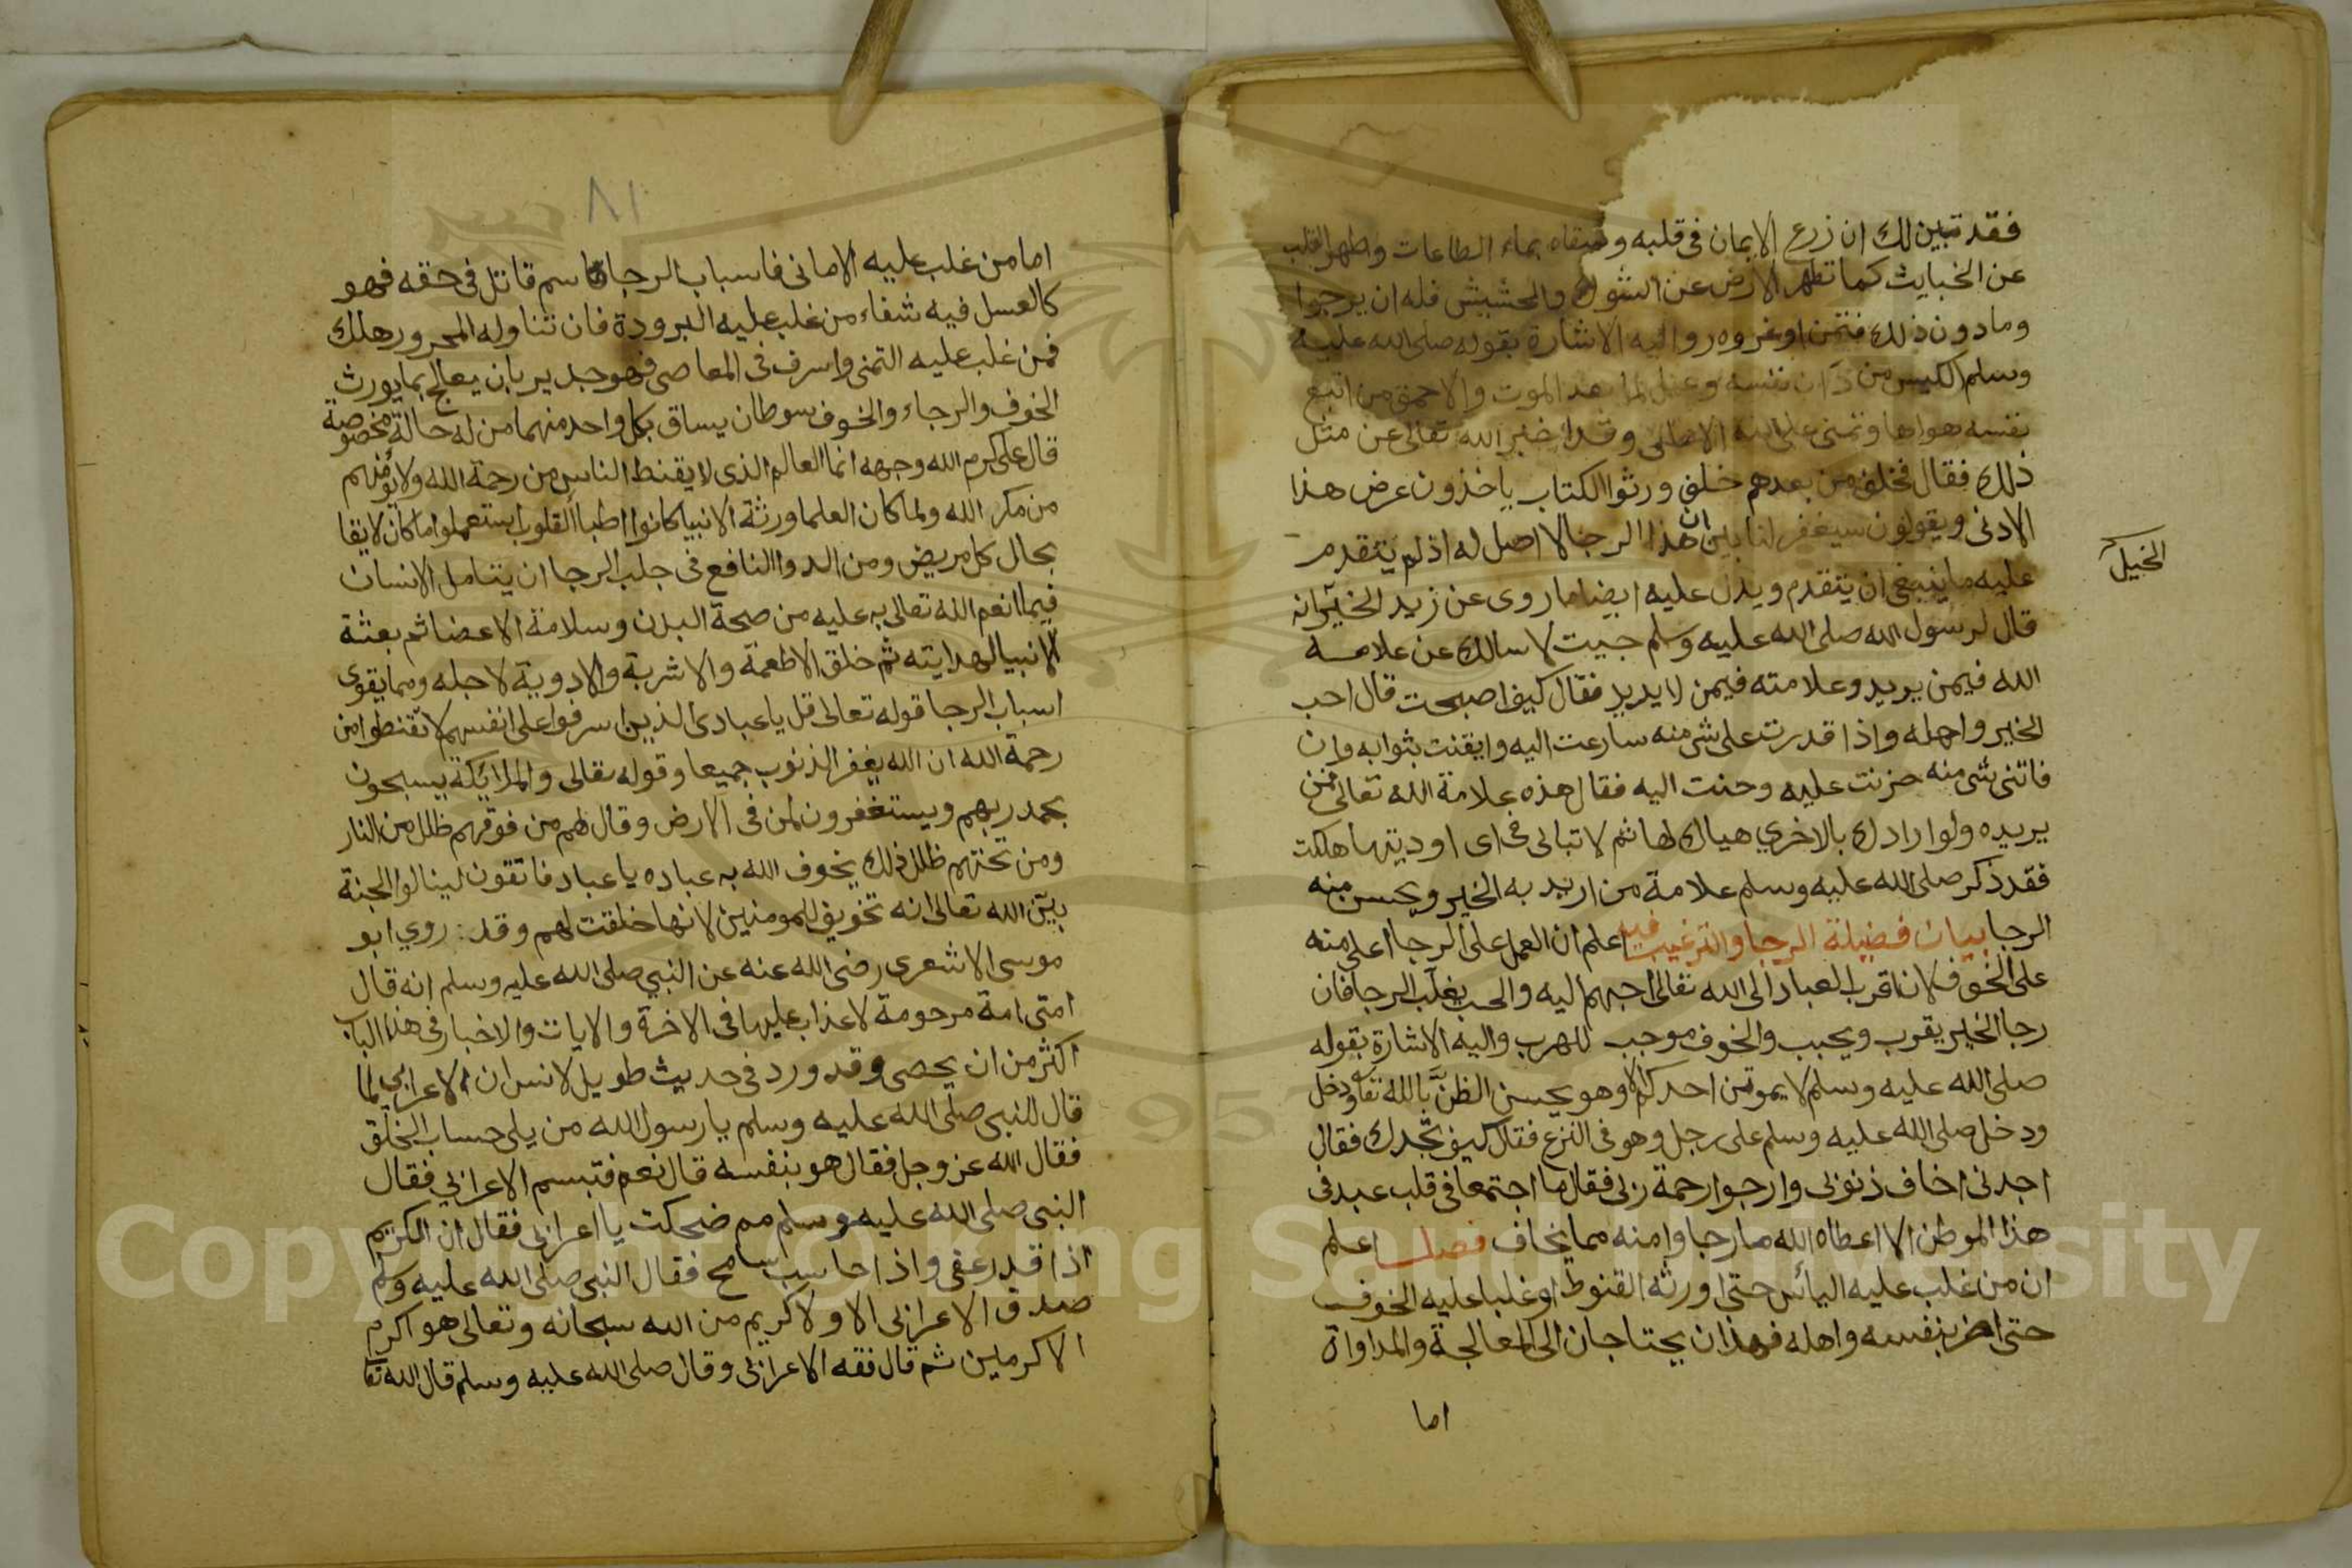 فقد تبين لك ان زرع الايمان فى قلبه وسقاه بماء الطاعات وطهر القلب
عن الخبايث كما تطهر الارض عن الشوك والحشيش فله ان يرجوا
وما دون ذلك فتمن او غرور واليه الاشارة بقوله صلى الله عليه
وسلم الكيس من دان نفسه وعمل لما بعد الموت والاحمق من اتبع
نفسه هواها وتمنى على الله الامانى وقد اخبر الله تعالى عن مثل
ذلك فقال فخلف من بعدهم خلف ورثوا الكتاب ياخذون عرض هذا
الادنى ويقولون سيغفر لنا بين ان هذا الرجا لا اصل له اذ لم يتقدم
عليه ما ينبغى ان يتقدم ويدل عليه ايضا ما روى عن زيد الخير انه
الخيل
قال لرسول الله صلى الله عليه وسلم جيت لاسالك عن علامة
الله فيمن يريد وعلامته فيمن لا يريد فقال كيف اصبحت قال احب
الخير واهله واذا قدرت على شى منه سارعت اليه وايقنت بثوابه وان
فاتنى شى منه حزنت عليه وحننت اليه فقال هذه علامة الله تعالى فمن
يريده ولو ارادك بالاخرى هياك لها ثم لا تبالى فى اى اوديتها هلكت
فقد ذكر صلى الله عليه وسلم علامة من اريد به الخير ويحسن منه
الرجا بيان فضيلة الرجا والترغيب فيه اعلم ان العمل على الرجا اعلى منه
على الخوف لان اقرب العباد الى الله تعالى احبهم اليه والحب يغلب الرجا فان
رجا الخير يقرب ويحبب والخوف موجب للهرب واليه الاشارة بقوله
صلى الله عليه وسلم لا يموتن احدكم الا وهو يحسن الظن بالله تعا ودخل
ودخل صلى الله عليه وسلم على رجل وهو فى النزع فقال كيف تجدك فقال
اجدنى اخاف ذنوبى وارجوا رحمة ربى فقال ما اجتمعا فى قلب عبد فى
هذا الموطن الا اعطاه الله ما رجا وامنه مما يخاف فصل اعلم
ان من غلب عليه اليأس حتى اورثه القنوط او غلب عليه الخوف
حتى اضر بنفسه واهله فهذان يحتاجان الى المعالجة والمداواة
اما
٨١
اما من غلب عليه الامانى فاسباب الرجا سم قاتل فى حقه فهو
كالعسل فيه شفاء من غلب عليه البرودة فان تناوله المحرور هلك
فمن غلب عليه التمنى واسرف فى المعاصى فهو جدير بان يعالج بما يورث
الخوف والرجاء والخوف سوطان يساق بكل واحد منهما من له حالة مخصوصة
قال على كرم الله وجهه انما العالم الذى لا يقنط الناس من رحمة الله ولا يؤمنهم
من مكر الله ولما كان العلما ورثة الانبيا كانوا اطبا القلوب استعملوا ما كان لايقا
بحال كل مريض ومن الدوا النافع فى جلب الرجا ان يتامل الانسان
فيما انعم الله تعالى به عليه من صحة البدن وسلامة الاعضا ثم بعثة
الانبيا لهدايته ثم خلق الاطعمة والاشربة والادوية لاجله ومما يقوى
اسباب الرجا قوله تعالى قل يا عبادى الذين اسرفوا على انفسهم لا تقنطوا من
رحمة الله ان الله يغفر الذنوب جميعا وقوله تعالى والملائكة يسبحون
بحمد ربهم ويستغفرون لمن فى الارض وقال لهم من فوقهم ظلل من النار
ومن تحتهم ظلل ذلك يخوف الله به عباده يا عباد فاتقون لينالوا الجنة
بين الله تعالى انه تخويف للمومنين لانها خلقت لهم وقد: روي ابو
موسى الاشعرى رضى الله عنه عن النبي صلى الله عليه وسلم انه قال
امتى امة مرحومة لا عذاب عليها فى الاخرة والايات والاخبار فى هذا الباب
اكثر من ان يحصى وقد ورد فى حديث طويل لانس ان الاعرابى لما
قال للنبى صلى الله عليه وسلم يا رسول الله من يلى حساب الخلق
فقال الله عز وجل فقال هو بنفسه قال نعم فتبسم الاعرابي فقال
النبى صلى الله عليه وسلم مم ضحكت يا اعرابى فقال ان الكريم
اذا قدر عفى واذا حاسب سامح فقال النبى صلى الله عليه وسلم
صدق الاعرابى الا ولا كريم من الله سبحانه وتعالى هو اكرم
الاكرمين ثم قال فقه الاعرابى وقال صلى الله عليه وسلم قال الله تعا
Copyright © King Saud University